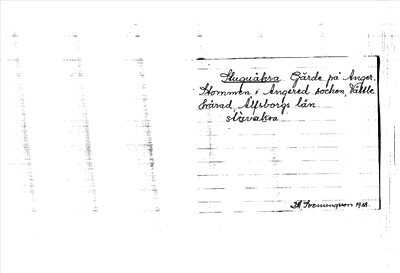 Stuguåkra Gärde på Anger.
Stommen i Angered socken, Vättle
härad, Älfsborgs län.
stövakra
Svenungsson 1933.